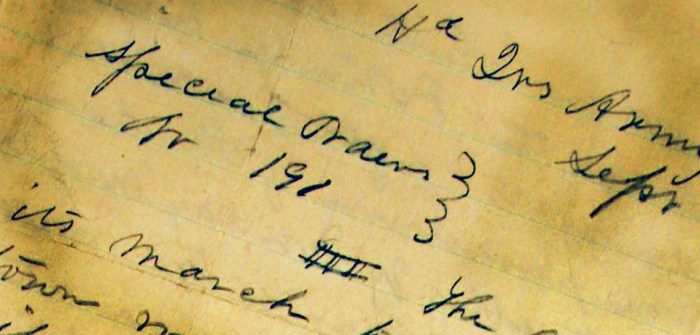 Hd Qrs Army
Special Orders } Sept
No 191 }
III The
its march
town